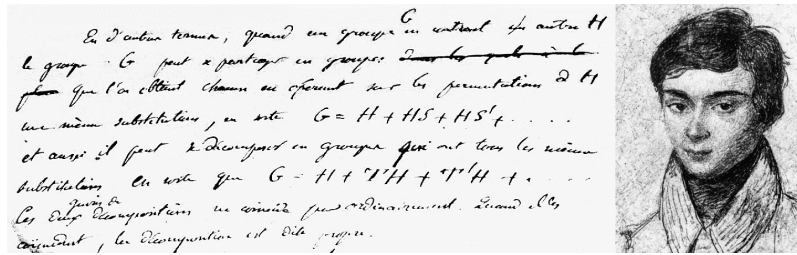 En d'autres termes, quand un groupe G en contient un autre H
le groupe G peut se partager en groupes
que l'on obtient chacun en opérant sur les permutations de H
une même substitution, en sorte G = H + HS + HS' + . . . .
et aussi il peut se décomposer en groupes qui ont tous les mêmes
substitutions en sorte que G = H + TH + T'H + . . . .
Ces deux genres de décompositions ne coincident pas ordinairement. Quand elles
coincident, la décomposition est dite propre.